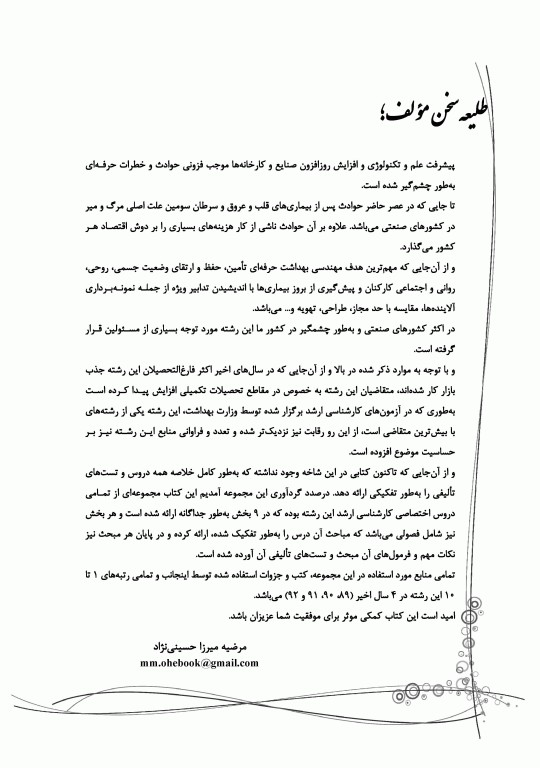 طلیعه سخن مؤلف؛
پیشرفت علم و تکنولوژی و افزایش روزافزون صنایع و کارخانه‌ها موجب فزونی حوادث و خطرات حرفه‌ای
به‌طور چشم‌گیر شده است.
تا جایی که در عصر حاضر حوادث پس از بیماری‌های قلب و عروق و سرطان سومین علت اصلی مرگ و میر
در کشورهای صنعتی می‌باشد. علاوه بر آن حوادث ناشی از کار هزینه‌های بسیاری را بر دوش اقتصاد هر
کشور می‌گذارد.
و از آن‌جایی که مهم‌ترین هدف مهندسی بهداشت حرفه‌ای تأمین، حفظ و ارتقای وضعیت جسمی، روحی،
روانی و اجتماعی کارکنان و پیش‌گیری از بروز بیماری‌ها با اندیشیدن تدابیر ویژه از جمله نمونه‌برداری
آلاینده‌ها، مقایسه با حد مجاز، طراحی، تهویه و... می‌باشد.
در اکثر کشورهای صنعتی و به‌طور چشمگیر در کشور ما این رشته مورد توجه بسیاری از مسئولین قرار
گرفته است.
و با توجه به موارد ذکر شده در بالا و از آن‌جایی که در سال‌های اخیر اکثر فارغ‌التحصیلان این رشته جذب
بازار کار شده‌اند، متقاضیان این رشته به خصوص در مقاطع تحصیلات تکمیلی افزایش پیدا کرده است
به‌طوری که در آزمون‌های کارشناسی ارشد برگزار شده توسط وزارت بهداشت، این رشته یکی از رشته‌های
با بیش‌ترین متقاضی است، از این رو رقابت نیز نزدیک‌تر شده و تعدد و فراوانی منابع این رشته نیز بر
حساسیت موضوع افزوده است.
و از آن‌جایی که تاکنون کتابی در این شاخه وجود نداشته که به‌طور کامل خلاصه همه دروس و تست‌های
تألیفی را به‌طور تفکیکی ارائه دهد. درصدد گردآوری این مجموعه آمدیم این کتاب مجموعه‌ای از تمامی
دروس اختصاصی کارشناسی ارشد این رشته بوده که در ۹ بخش به‌طور جداگانه ارائه شده است و هر بخش
نیز شامل فصولی می‌باشد که مباحث آن درس را به‌طور تفکیک شده، ارائه کرده و در پایان هر مبحث نیز
نکات مهم و فرمول‌های آن مبحث و تست‌های تألیفی آن آورده شده است.
تمامی منابع مورد استفاده در این مجموعه، کتب و جزوات استفاده شده توسط اینجانب و تمامی رتبه‌های ۱ تا
۱۰ این رشته در ۴ سال اخیر (۸۹، ۹۰، ۹۱ و ۹۲) می‌باشد.
امید است این کتاب کمکی موثر برای موفقیت شما عزیزان باشد.
مرضیه میرزا حسینی‌نژاد
mm.ohebook@gmail.com